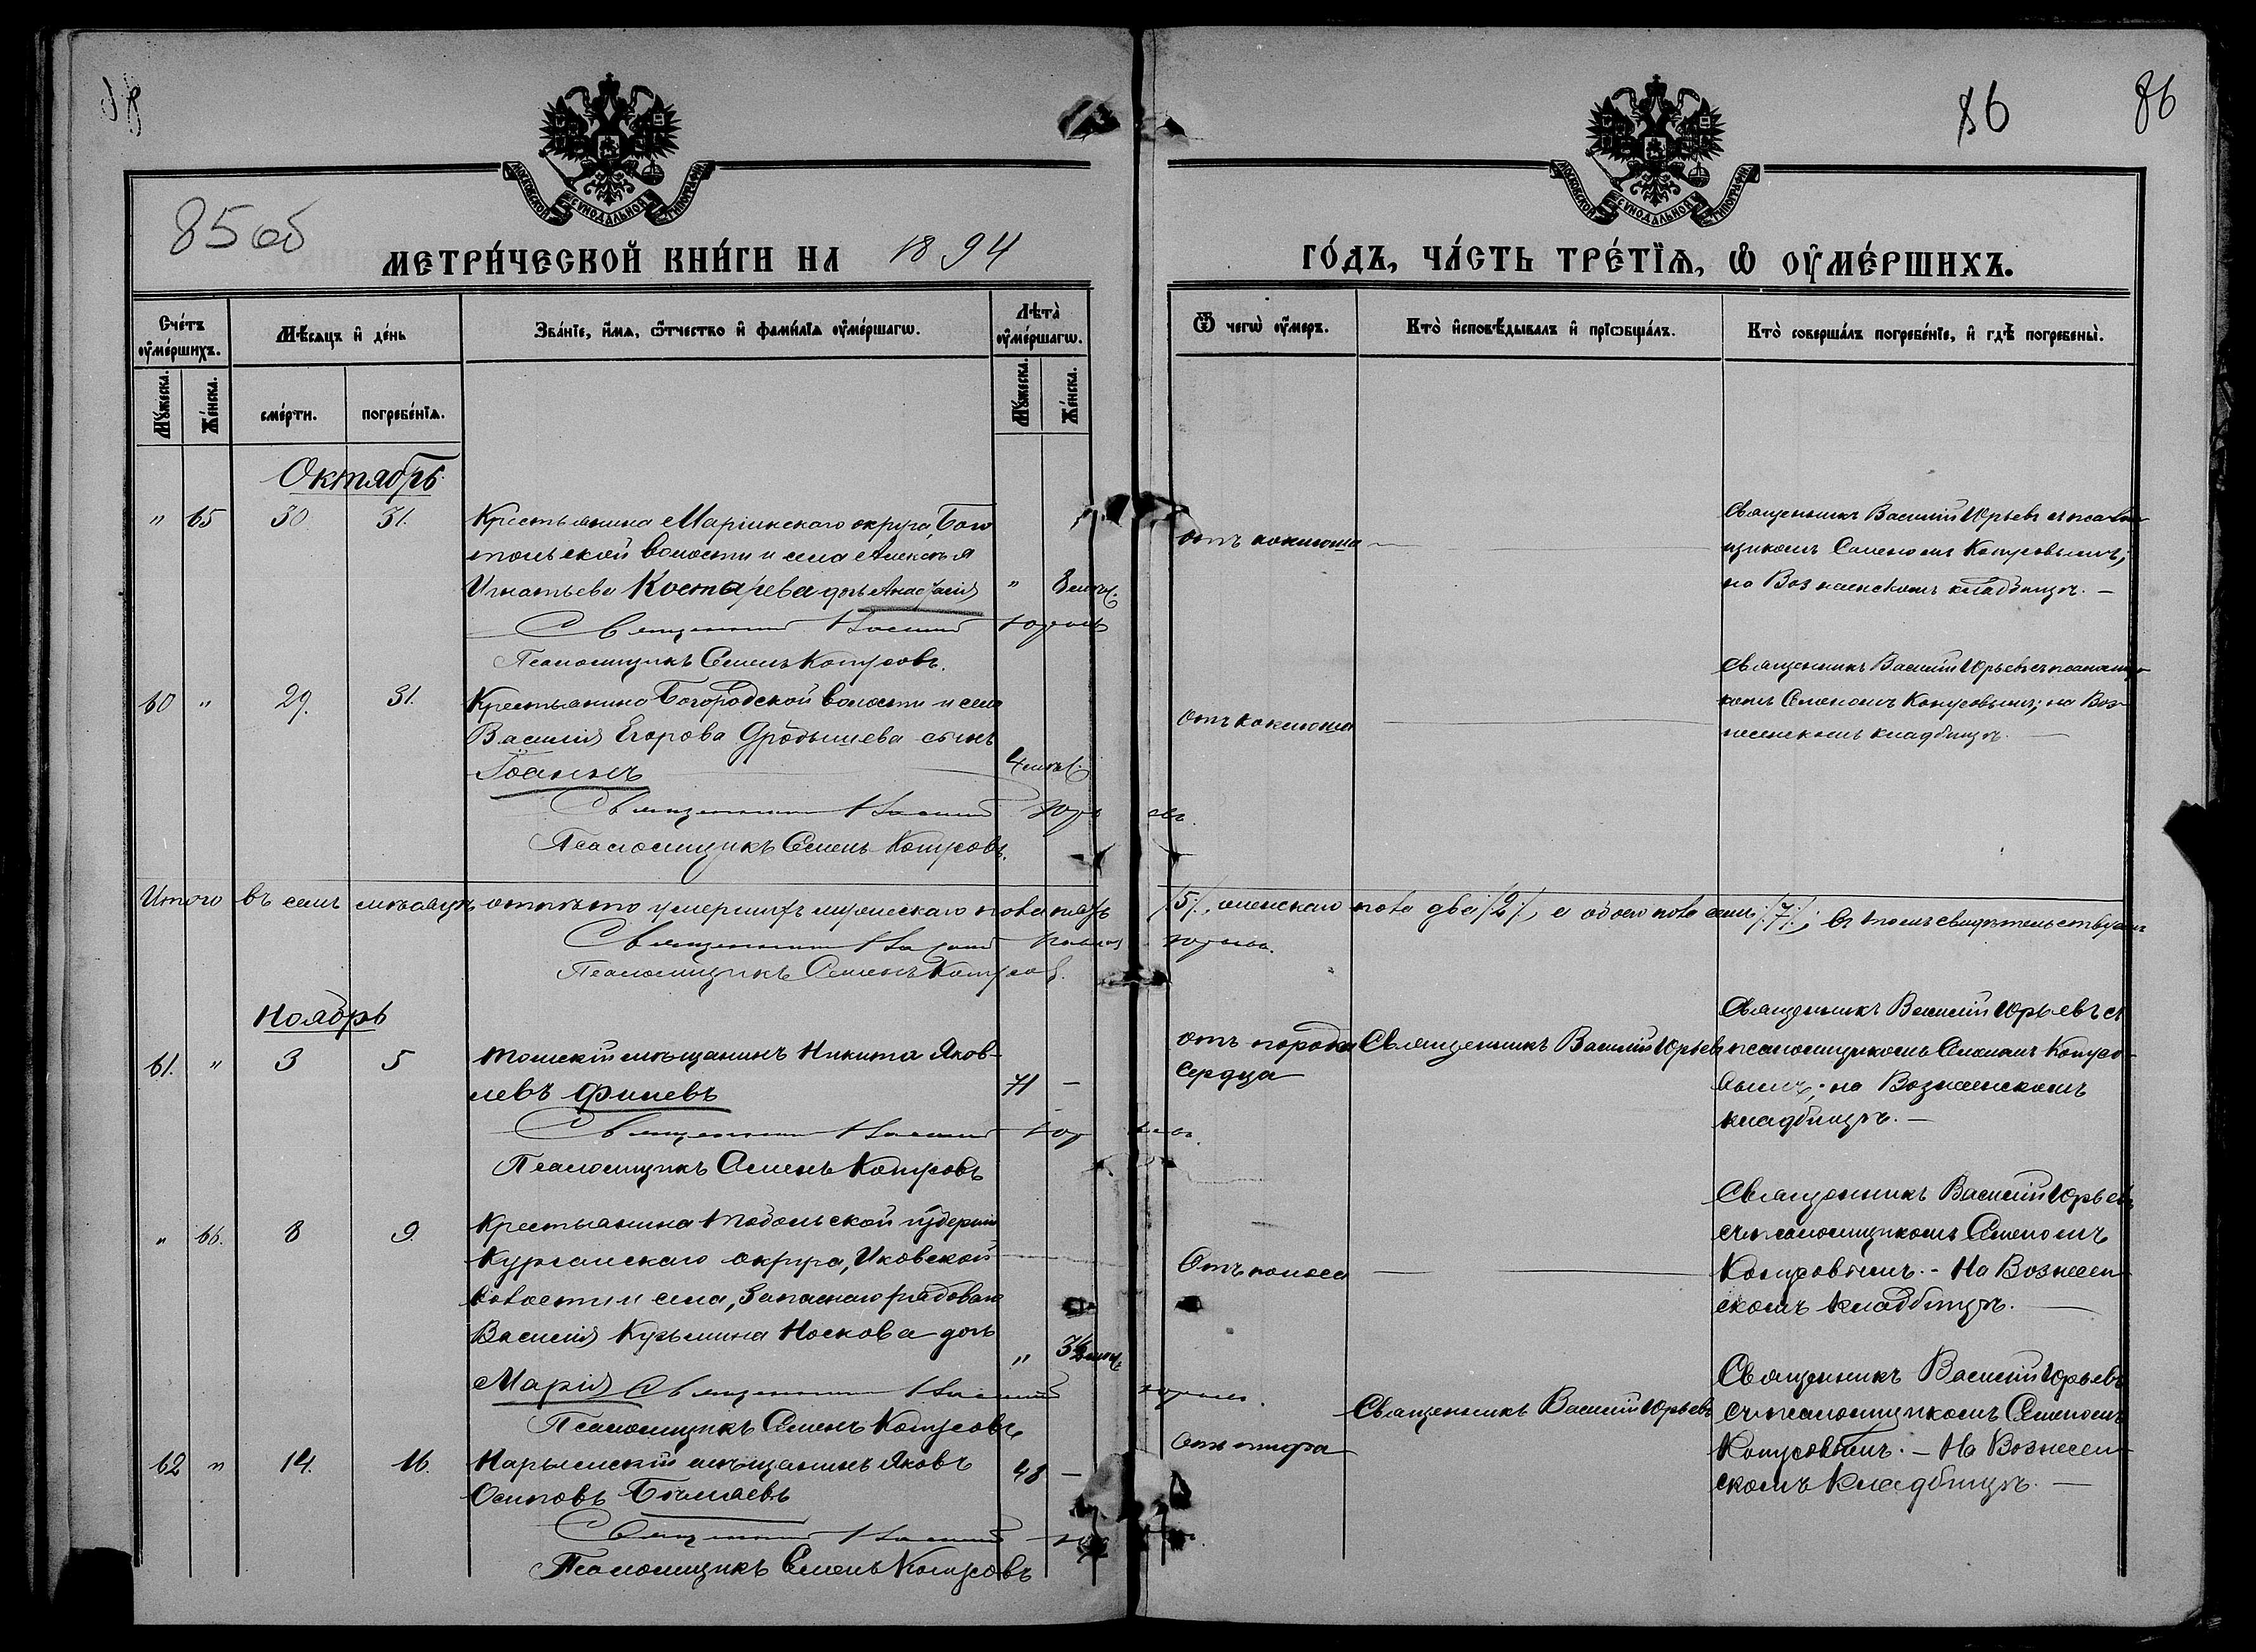 86
86
85 об
МОСКОВСКОЙ СѴНОДАЛЬНОЙ ТИПОГРАФІИ
МОСКОВСКОЙ СѴНОДАЛЬНОЙ ТИПОГРАФІИ
МЕТРИ́ЧЕСКОЙ КНИ́ГИ НА 1894
ГО́ДЪ, ЧА́СТЬ ТРЕ́ТЇѦ, Ѡ҆ ОУ҆МЕ́РШИХЪ.
Сче́тъ оу҆ме́ршихъ.
Мѣ́сѧцъ и҆ де́нь
Зва́нїе, и҆́мѧ, ѻ҆́тчество и҆ фами́лїѧ оу҆ме́ршагѡ.
Лѣта̀ оу҆ме́ршагѡ.
Ѿ чегѡ̀ оу҆́меръ.
Кто̀ и҆сповѣ́дывалъ и҆ прїѡбща́лъ.
Кто̀ соверша́лъ погребе́нїе, и҆ гдѣ̀ погребены̀.
Мꙋ́жеска.
Же́нска.
сме́рти.
погребе́нїѧ.
Мꙋ́жеска.
Же́нска.
Октябрь
" 65 30 31. Крестьянина Маріинскаго округа, Бого
тольской волости и села Алексѣя
Игнатьева Костарева дочь Анастасія " 8 мѣс.
Священникъ Василій Юрьевъ
Псаломщикъ Семенъ Копусовъ.
отъ коклюша
Священникъ Василій Юрьевъ съ псалом
щикомъ Семеномъ Копусовымъ;
на Вознесенскомъ кладбищѣ. —
60 " 29. 31. Крестьянина Богородской волости и села
Василія Егорова Дробышева сынъ
Іоаннъ 4 мѣс.
Священникъ Василій Юрьевъ.
Псаломщикъ Семенъ Копусовъ.
отъ коклюша
Священникъ Василій Юрьевъ съ псаломщи
комъ Семеномъ Копусовымъ; на Воз-
несенскомъ кладбищѣ. —
Итого въ семъ мѣсяцѣ отпѣто умершихъ мужескаго пола пять /5/, женскаго пола два /2/, а обоего пола семь /7/; въ томъ свидѣтельствуемъ
Священникъ Василій Юрьевъ.
Псаломщикъ Семенъ Копусовъ.
Ноябрь
61. " 3 5 Томскій мѣщанинъ Никита Яков-
левъ Филевъ 71 —
Священникъ Василій Юрьевъ.
Псаломщикъ Семенъ Копусовъ
отъ порока
сердца
Священникъ Василій Юрьевъ
Священникъ Василій Юрьевъ съ
псаломщикомъ Семеномъ Копусо-
вымъ; на Вознесенскомъ
кладбищѣ. —
" 66. 8 9. Крестьянина Тобольской губерніи
Курганскаго округа, Иковской
волости и села, запаснаго рядового
Василія Кузьмина Носкова дочь
Марія " 3½ мѣс.
Священникъ Василій Юрьевъ.
Псаломщикъ Семенъ Копусовъ
Отъ поноса
Священникъ Василій Юрьевъ
съ псаломщикомъ Семеномъ
Копусовымъ. - На Вознесен
скомъ кладбищѣ. —
62 " 14. 16. Нарымскій мѣщанинъ Яковъ
Осиповъ 48 —
Священникъ Василій Юрьевъ
Псаломщикъ Семенъ Копусовъ
Отъ тифа
Священникъ Василій Юрьевъ
Священникъ Василій Юрьевъ
съ псаломщикомъ Семеномъ
Копусовымъ. — На Вознесен-
скомъ кладбищѣ. —